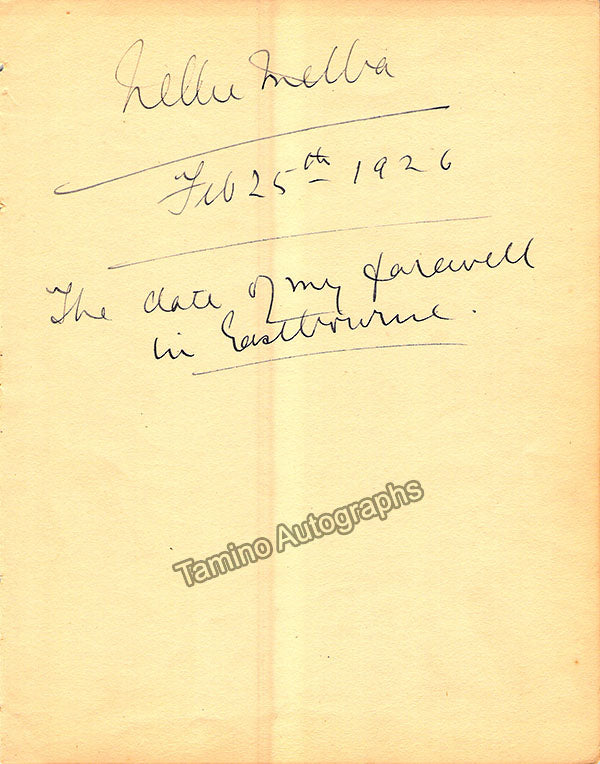 Nellie Melba
Feb 25th 1926
The date of my farewell
in Eastbourne.
Tamino Autographs